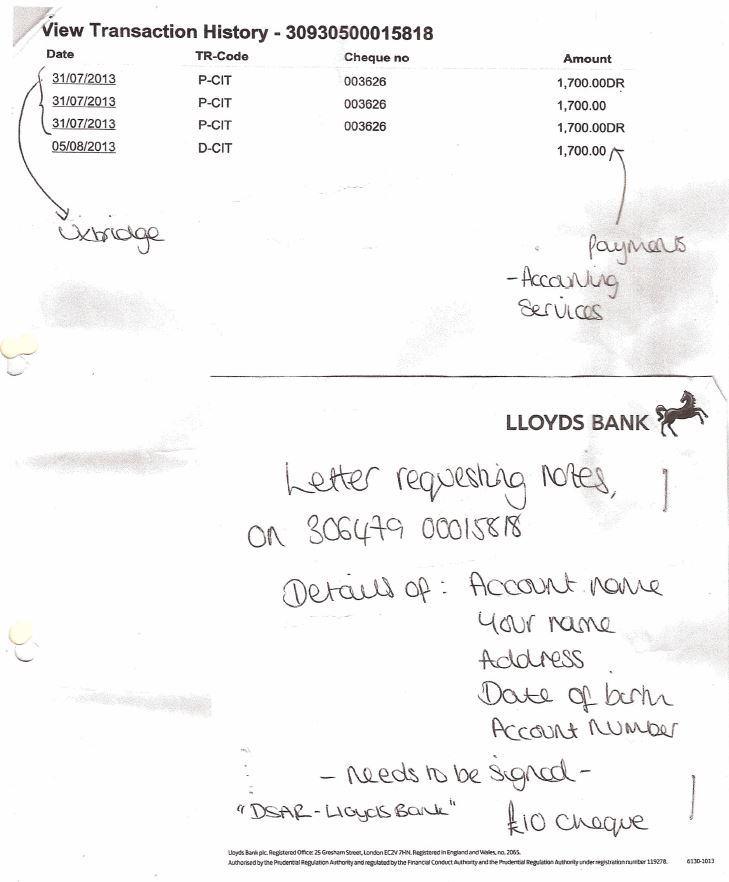 View Transaction History - 30930500015818
Date TR-Code Cheque no Amount
31/07/2013 P-CIT 003626 1,700.00DR
31/07/2013 P-CIT 003626 1,700.00
31/07/2013 P-CIT 003626 1,700.00DR
05/08/2013 D-CIT 1,700.00
Uxbridge
Payments
- Accounting
Services
LLOYDS BANK
Letter requesting notes,
on 306479 00015818
Details of: Account name
Your name
Address
Date of birth
Account number
- needs to be signed -
"DSAR - Lloyds Bank" £10 cheque
Lloyds Bank plc. Registered Office: 25 Gresham Street, London EC2V 7HN. Registered in England and Wales, no. 2065.
Authorised by the Prudential Regulation Authority and regulated by the Financial Conduct Authority and the Prudential Regulation Authority under registration number 119278. 6130-1013